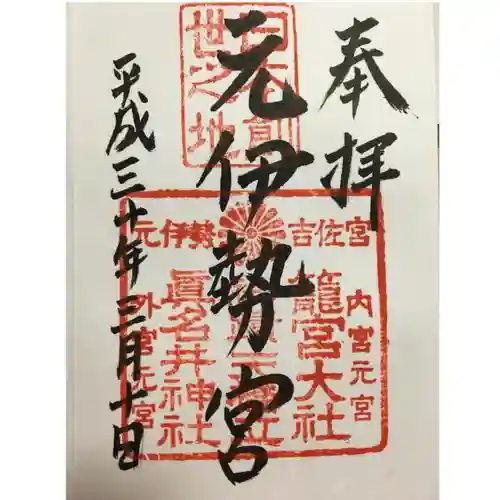 奉拝
元伊勢宮
平成三十年三月十日
世之地
元伊勢 吉佐宮
内宮元宮
籠宮大社
眞名井神社
外宮元宮